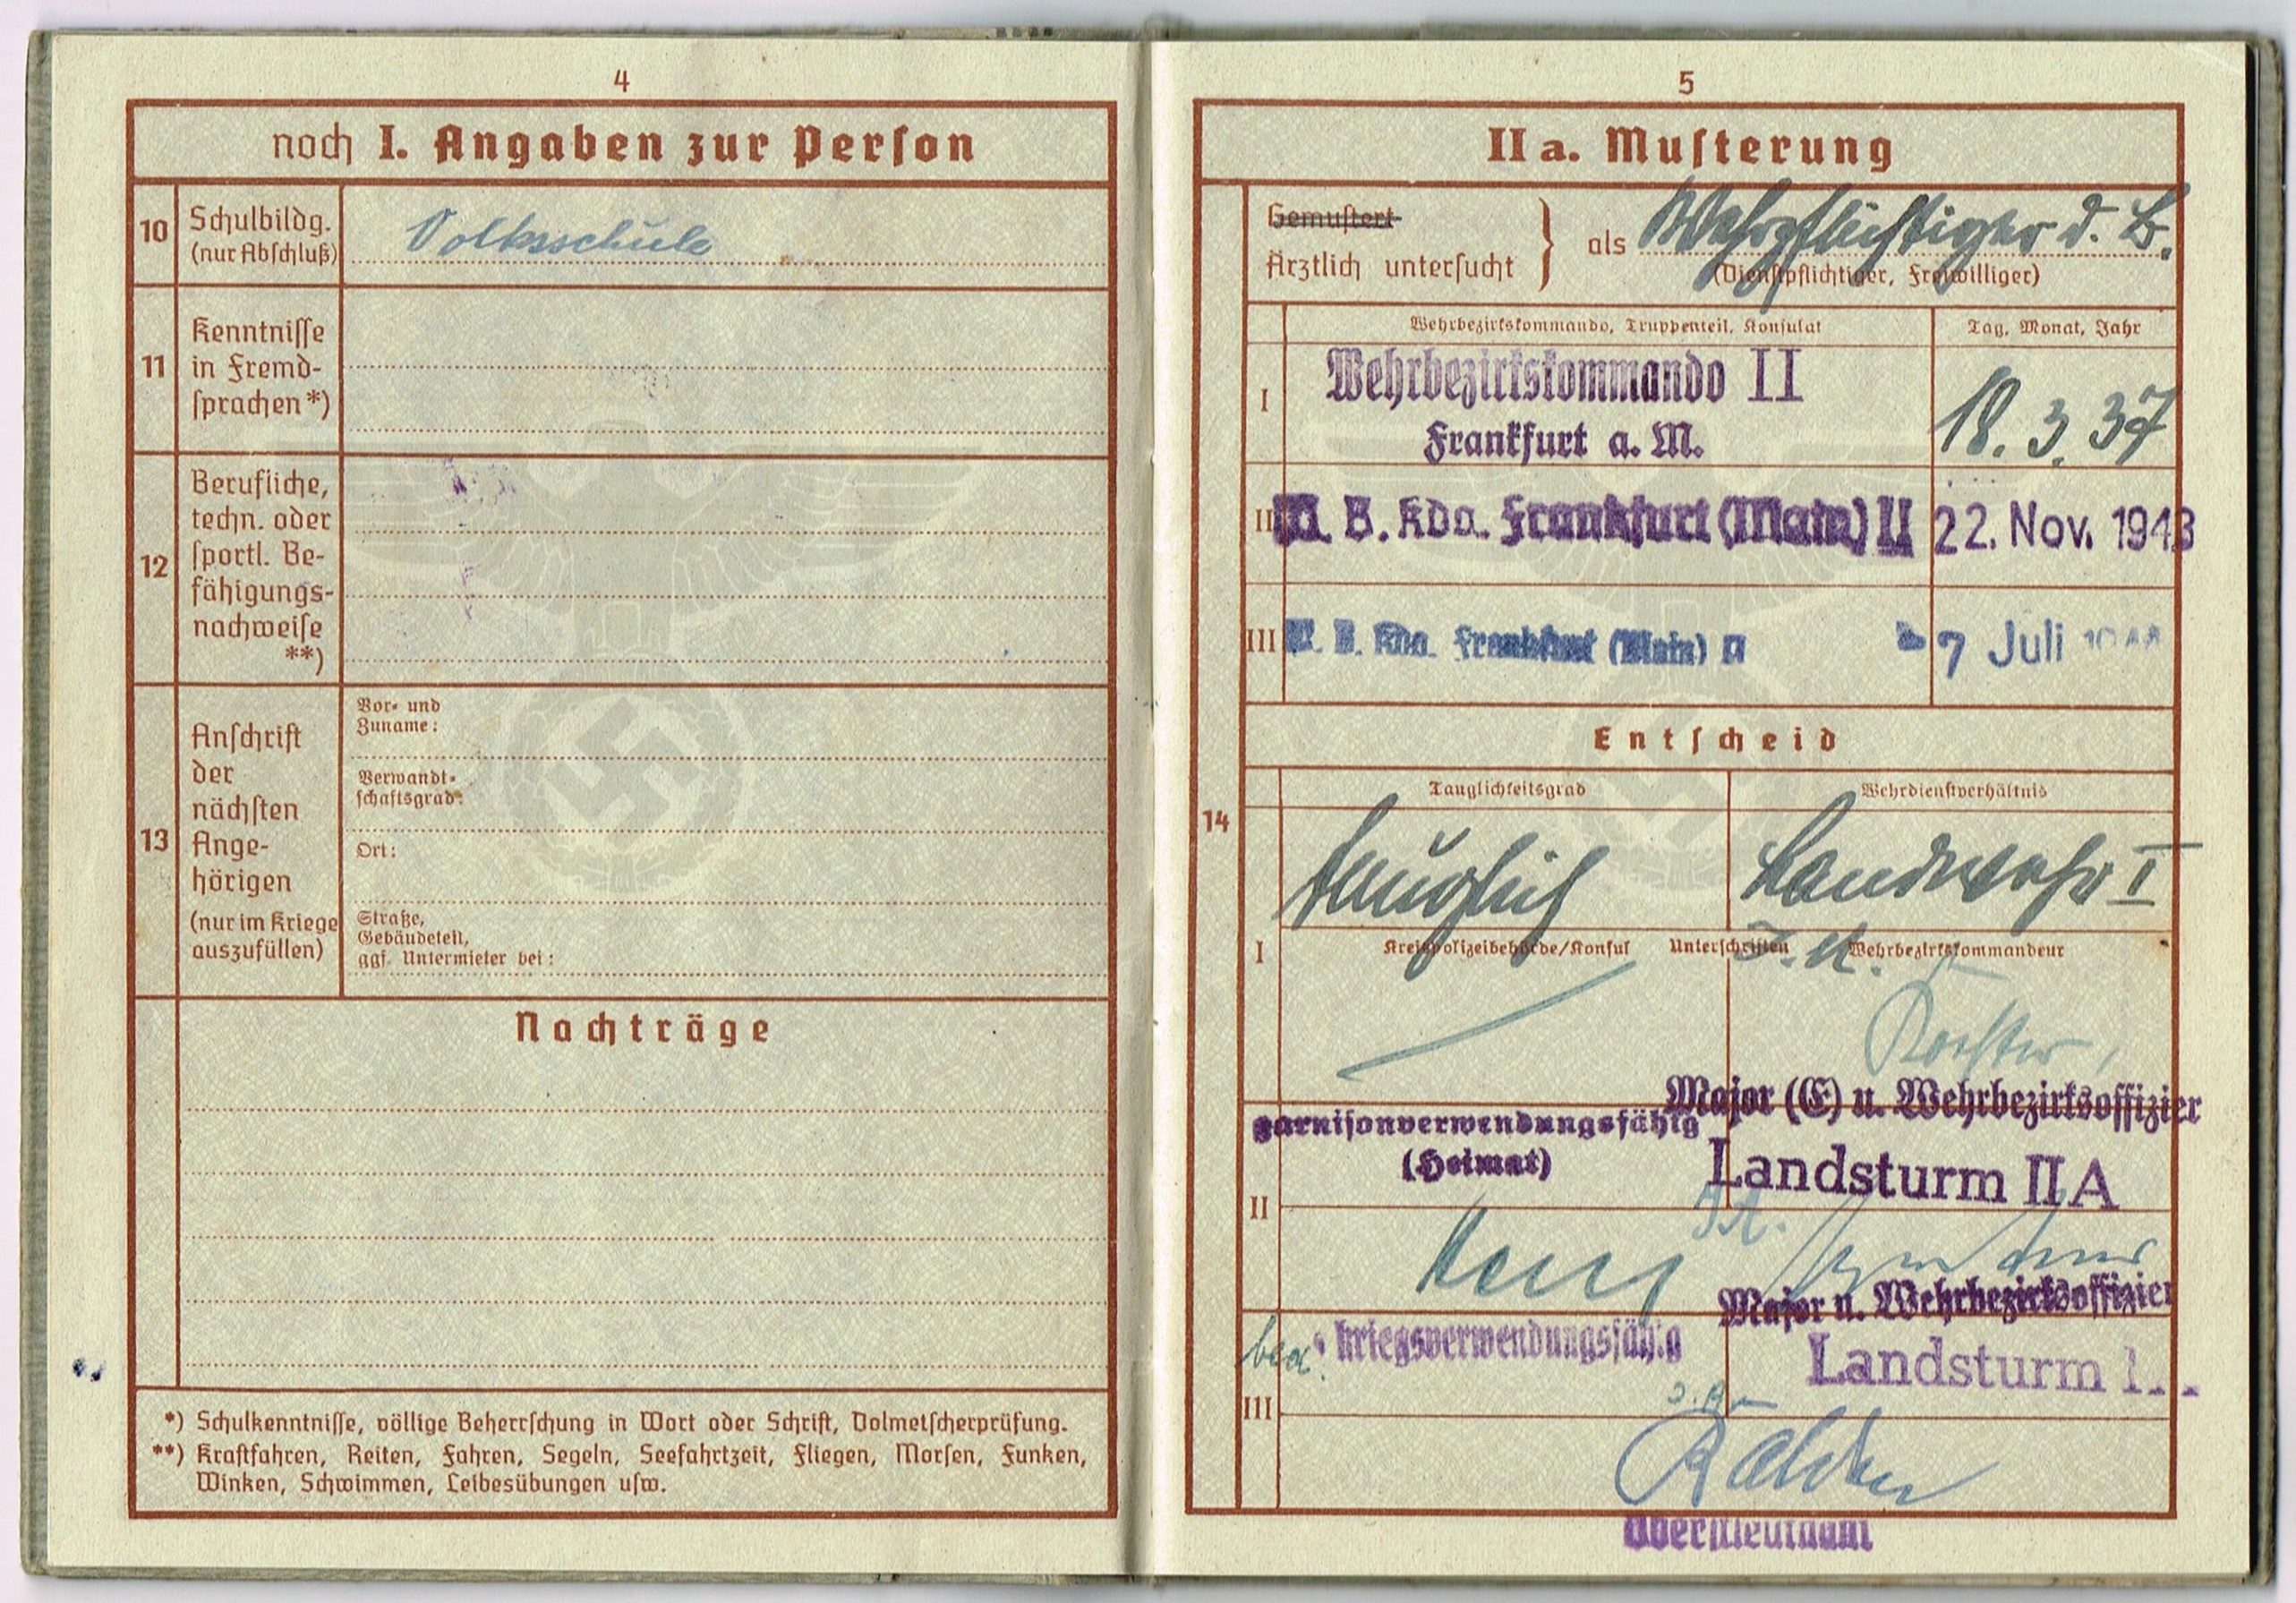 4
noch I. Angaben zur Person
10
Schulbildg.
(nur Abschluß)
Volksschule
11
Kenntnisse
in Fremd-
sprachen *)
12
Berufliche,
techn. oder
sportl. Be-
fähigungs-
nachweise
**)
13
Anschrift
der
nächsten
Ange-
hörigen
(nur im Kriege
auszufüllen)
Vor- und
Zuname:
Verwandt-
schaftsgrad:
Ort:
Straße,
Gebäudeteil,
ggf. Untermieter bei:
Nachträge
*) Schulkenntnisse, völlige Beherrschung in Wort oder Schrift, Dolmetscherprüfung.
**) Kraftfahren, Reiten, Fahren, Segeln, Seefahrtzeit, Fliegen, Morsen, Funken,
Winken, Schwimmen, Leibesübungen usw.
5
II a. Musterung
14
Gemustert
Ärztlich untersucht
als Wehrpflichtiger d. B.
(Dienstpflichtiger, Freiwilliger)
Wehrbezirkskommando, Truppenteil, Konsulat
Tag, Monat, Jahr
I
Wehrbezirkskommando II
Frankfurt a. M.
18. 3. 37
II
W. B. Kdo. Frankfurt (Main) II
22. Nov. 1943
III
W. B. Kdo. Frankfurt (Main) II
7 Juli 1944
Entscheid
Tauglichkeitsgrad
Wehrdienstverhältnis
I
tauglich
Landwehr I
Kreispolizeibehörde/Konsul
Unterschriften
Wehrbezirkskommandeur
Major (E) u. Wehrbezirksoffizier
II
garnisonverwendungsfähig
(Heimat)
Landsturm II A
J.A.
Major u. Wehrbezirksoffizier
III
bed. kriegsverwendungsfähig
Landsturm
Oberstleutnant